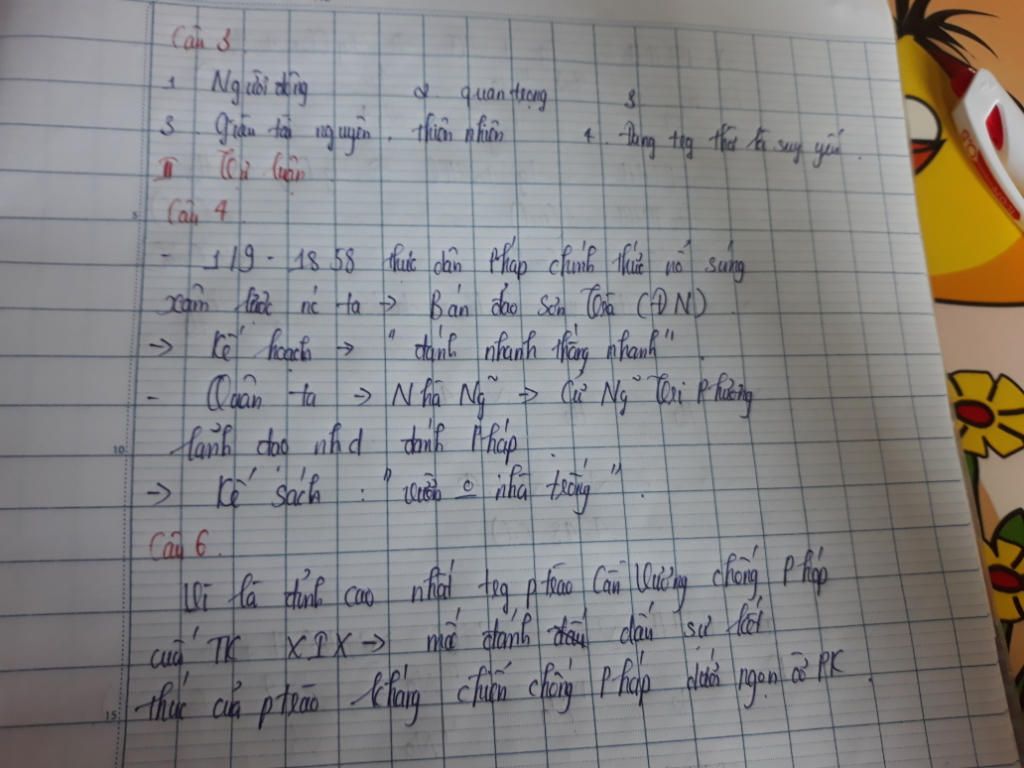 Câu 3
1 Người động 2. quan trọng 3.
3 giàu tài nguyên. thiên nhiên 4. Đang teg thời kì suy yếu.
II Tự luận
Câu 4
- 1/9 - 1858 thực dân Pháp chính thức nổ súng
xâm lược nc ta → Bán đảo Sơn Trà (ĐN)
→ Kế hoạch → "đánh nhanh thắng nhanh".
- Quân ta → Nhà Ngỹ → Cử Ngỹ Tri Phương
lãnh đạo nhd đánh Pháp.
→ Kế sách : "vườn o nhà trống".
Câu 6.
Vì là đỉnh cao nhất teg ptrào Cần Vương chống Pháp
cuối TK XIX → mà đánh dấu sự kết
thúc của ptrào kháng chiến chống Pháp dưới ngọn cờ PK.